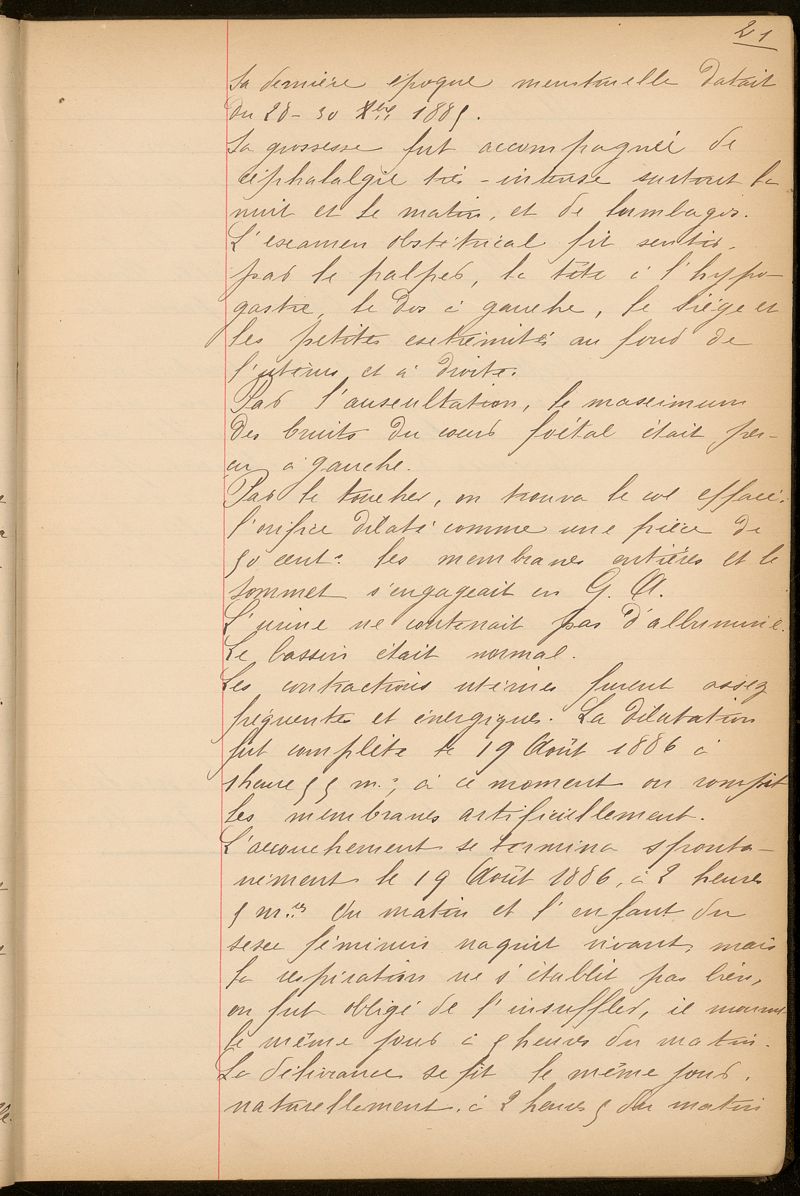 21
Sa dernière époque menstruelle datait
du 28-30 Xbre 1885.
La grossesse fut accompagnée de
céphalalgie très-intense surtout la
nuit et le matin, et de lumbagos.
L'examen obstétrical fit sentir,
par le palper, la tête à l'hypo-
gastre, le dos à gauche, le siège et
les petites extrémités au fond de
l'utérus et à droite.
Par l'auscultation, le maximum
des bruits du cœur foetal était per-
çu à gauche.
Par le toucher, on trouva le col effacé,
l'orifice dilaté comme une pièce de
50 cent.s les membranes entières et le
sommet s'engageait en G. A.
L'urine ne contenait pas d'albumine.
Le bassin était normal.
Les contractions utérines furent assez
fréquentes et énergiques. La dilatation
fut complète le 19 Août 1886 à
1 heure 55 m.s, à ce moment on rompit
les membranes artificiellement.
L'accouchement se termina sponta-
nément le 19 Août 1886, à 2 heures
5 m.es du matin et l'enfant du
sexe féminin naquit vivant, mais
la respiration ne s'établit pas bien,
on fut obligé de l'insuffler, il mourut
le même jour à 5 heures du matin.
La délivrance se fit le même jour,
naturellement, à 2 heures 5 du matin